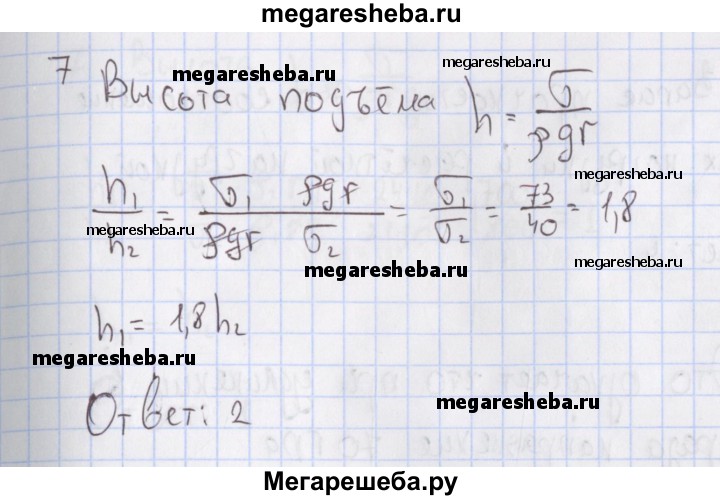 megaresheba.ru
7 Высота подъёма h = σ/ρgr
megaresheba.ru
megaresheba.ru
megaresheba.ru
h₁/h₂ = σ₁ ρgr / ρgr σ₂ = σ₁/σ₂ = 73/40 = 1,8
megaresheba.ru
megaresheba.ru
megaresheba.ru
h₁ = 1,8 h₂
megaresheba.ru
Ответ: 2
megaresheba.ru
Мегарешеба.ру